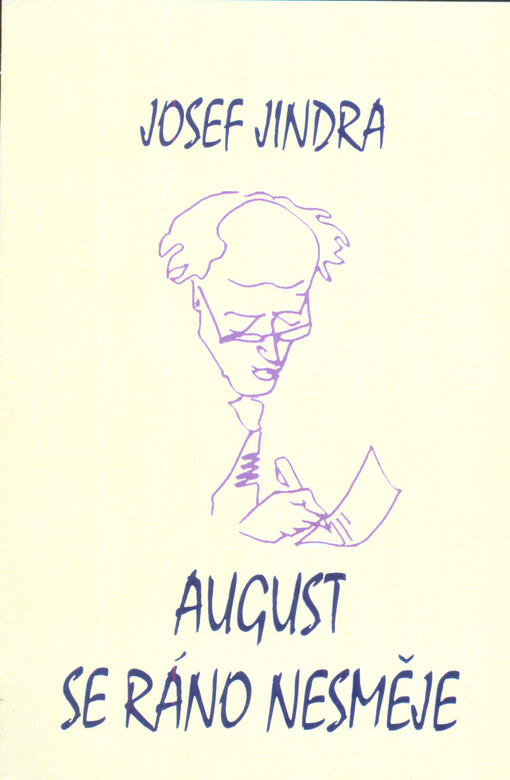 JOSEF JINDRA
AUGUST
SE RÁNO NESMĚJE